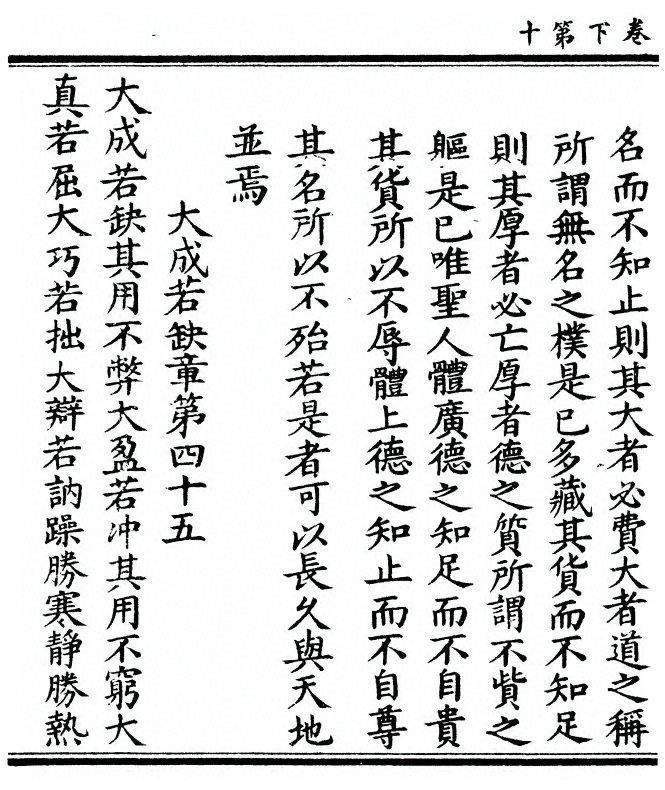 卷下第十
名而不知止則其大者必費大者道之稱
所謂無名之樸是已多藏其貨而不知足
則其厚者必亡厚者德之質所謂不貲之
軀是已唯聖人體廣德之知足而不自貴
其貨所以不辱體上德之知止而不自尊
其名所以不殆若是者可以長久與天地
並焉
大成若缺章第四十五
大成若缺其用不弊大盈若冲其用不窮大
真若屈大巧若拙大辯若訥躁勝寒靜勝熱